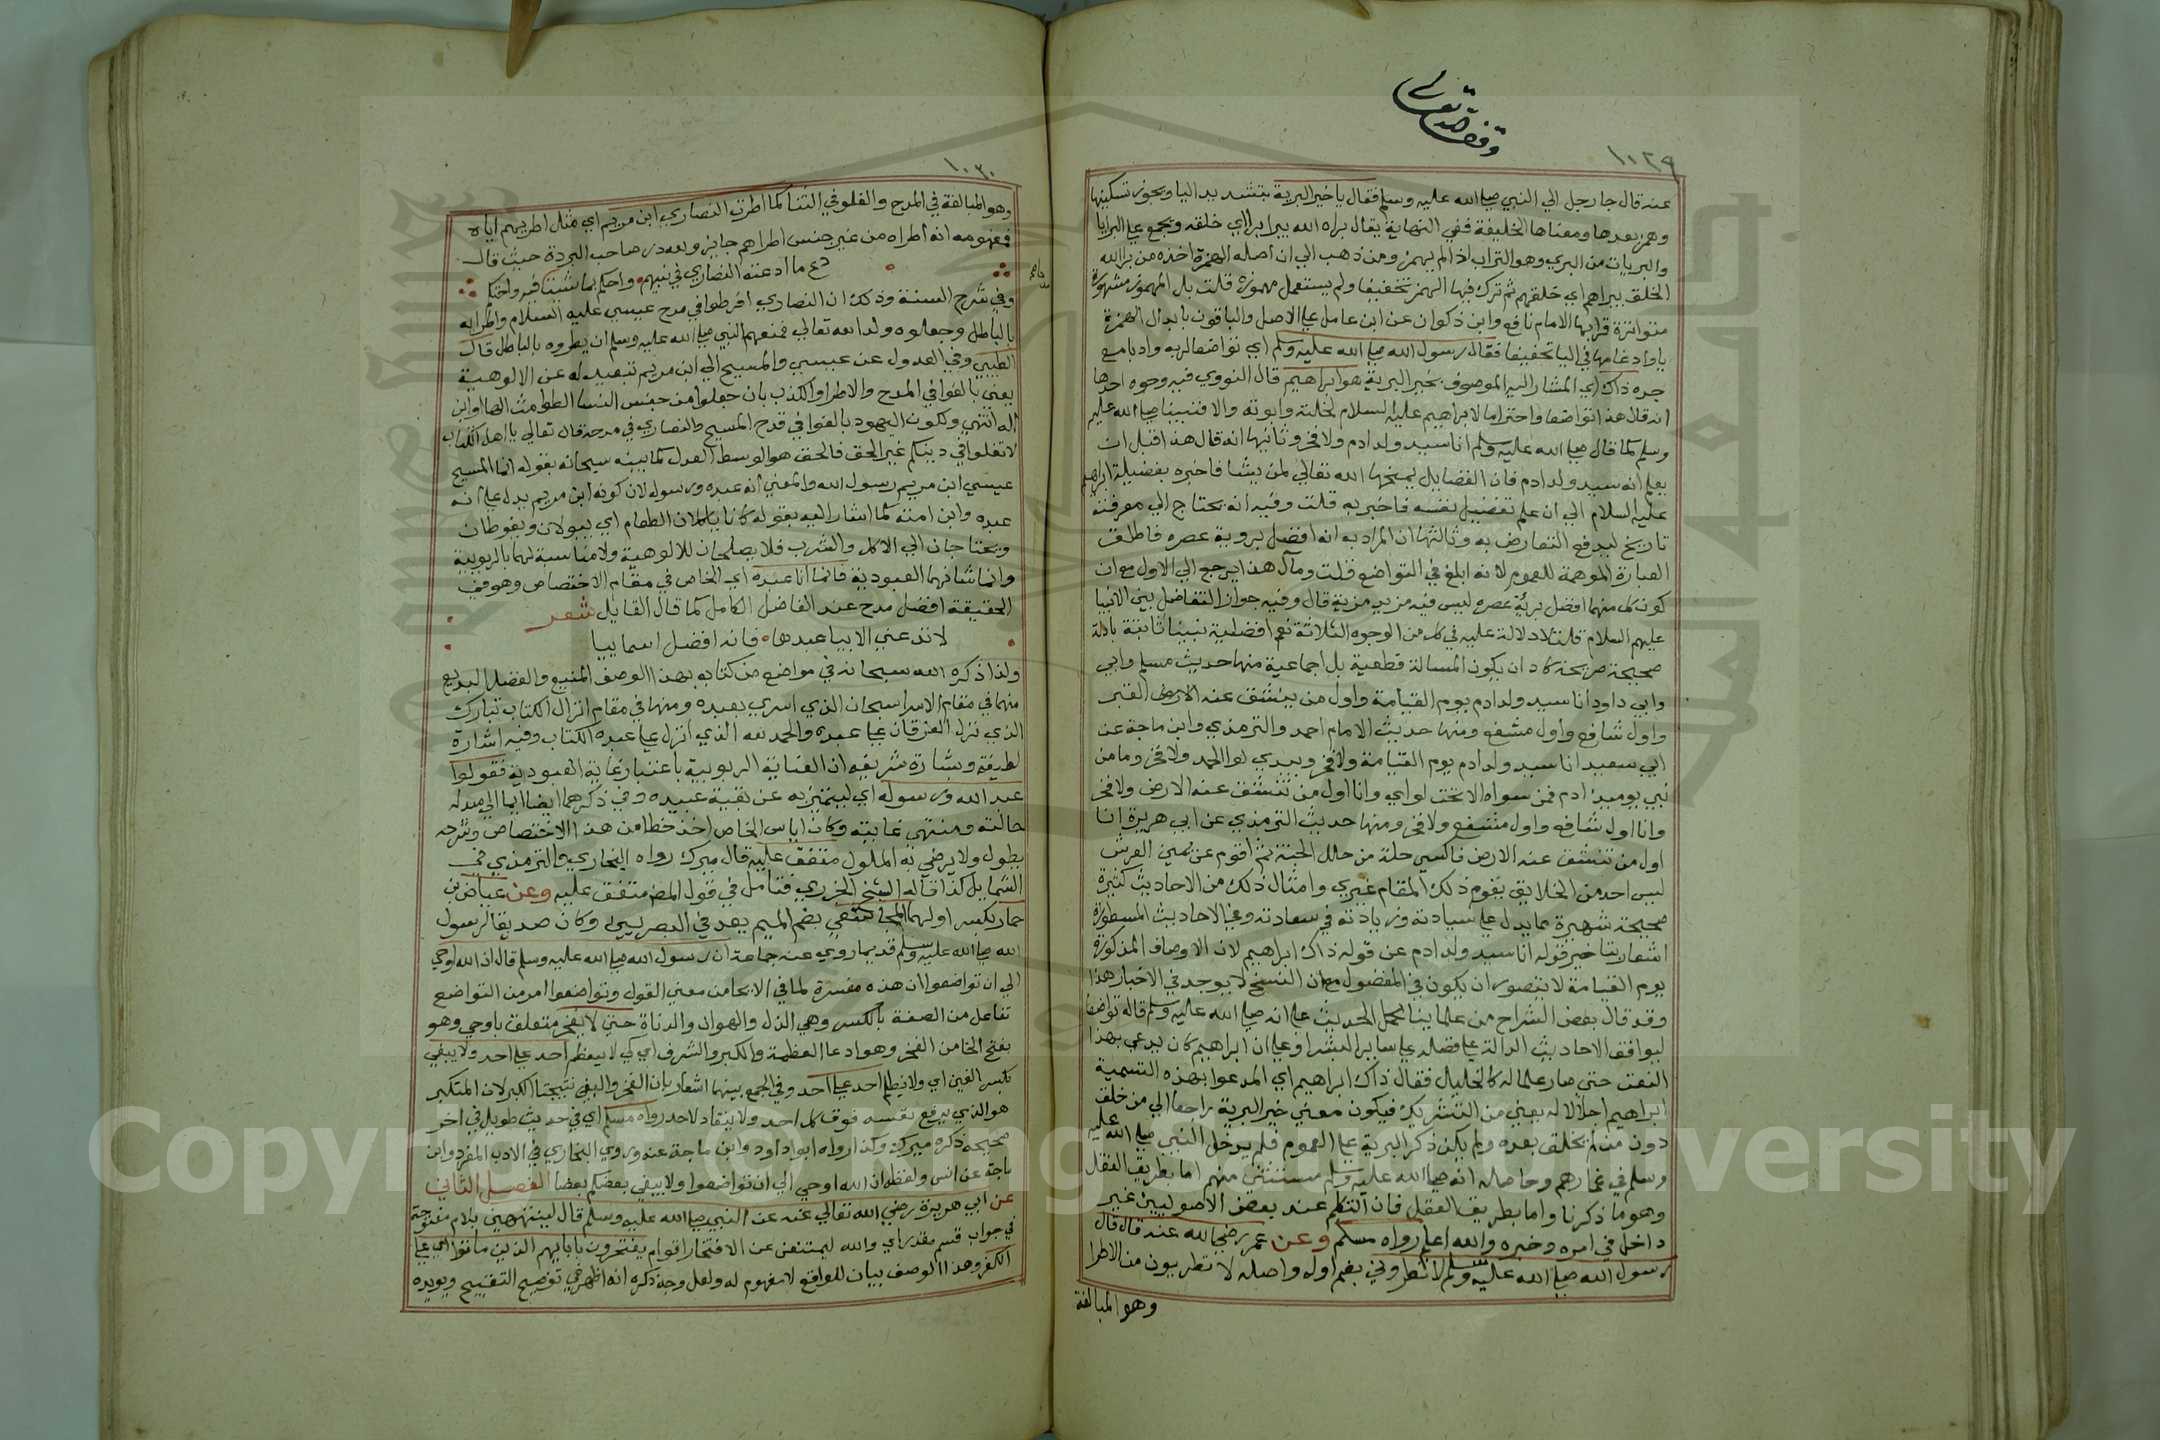 وقف لله تعالى
١٠٢٩
عنه قال جا رجل الي النبي صلي الله عليه وسلم فقال ياخير البرية بتشديد اليا ويجوز تسكينها
وهمز بعدها ومعناها الخليقة ففي النهاية يقال براه الله يبرا برا اي خلقه ويجمع علي البرايا
والبريات من البري وهو التراب اذا لم يهمز ومن ذهب الي ان اصله الهمزة اخذه من برا الله
الخلق يبراهم اي خلقهم ثم ترك فيها الهمز تخفيفا ولم يستعمل مهموزة قلت بل المهموزة مشهورة
متواترة قرا بها الامام نافع وابن ذكوان عن ابن عامر علي الاصل والباقون بابدال الهمزة
يا وادغامها في اليا تخفيفا فقال رسول الله صلي الله عليه وسلم اي تواضعا لربه وادبا مع
جده ذاك اي المشار اليه الموصوف بخير البرية هو ابراهيم قال النووي فيه وجوه احدها
انه قال هذا تواضعا واحتراما لابراهيم عليه السلام لخلته وابوته والا فنبينا صلي الله عليه
وسلم كما قال صلي الله عليه وسلم انا سيد ولد ادم ولا فخر وثانيها انه قال هذا قبل ان
يعلم انه سيد ولد ادم فان الفضايل يمنحها الله تعالي لمن يشا فاخبره بفضيلة ابراهيم
عليه السلام الي ان علم تفضيل نفسه فاخبر به قلت وفيه انه يحتاج الي معرفة
تاريخ ليدفع التعارض به وثالثها ان المراد به انه افضل برية عصره فاطلق
العبارة الموهمة للعموم لانه ابلغ في التواضع قلت ومآل هذا يرجع الي الاول مع ان
كون كل منهما افضل برية عصره ليس فيه مزيد مزية قال وفيه جواز التفاضل بين الانبيا
عليهم السلام قلت لا دلالة عليه في كل من الوجوه الثلاثة نعم افضلية نبينا ثابتة بادلة
صحيحة صريحة كاد ان يكون المسالة قطعية بل اجماعية منها حديث مسلم وابي
وابي داود انا سيد ولد ادم يوم القيامة واول من ينشق عنه الارض القبر
واول شافع واول مشفع ومنها حديث الامام احمد والترمذي وابن ماجة عن
ابي سعيد انا سيد ولد ادم يوم القيامة ولا فخر وبيدي لوا الحمد ولا فخر وما من
نبي يوميذ ادم فمن سواه الا تحت لواي وانا اول من تنشق عنه الارض ولا فخر
وانا اول شافع واول مشفع ولا فخر ومنها حديث الترمذي عن ابي هريرة انا
اول من تنشق عنه الارض فاكسي حلة من حلل الجنة ثم اقوم عن يمين العرش
ليس احد من الخلايق يقوم ذلك المقام غيري وامثال ذلك من الاحاديث كثيرة
صحيحة شهيرة مما يدل علي سيادته وزيادته في سعادته وفي الاحاديث المسطورة
اشعار بتاخير قوله انا سيد ولد ادم عن قوله ذاك ابراهيم لان الاوصاف المذكورة
يوم القيامة لا يتصور ان يكون في المفضول مع ان النسخ لا يوجد في الاخبار هذا
وقد قال بعض الشراح من علماينا يحمل الحديث علي انه صلي الله عليه وسلم قاله تواضعا
ليوافق الاحاديث الدالة علي فضله علي ساير البشر او علي ان ابراهيم كان يدعي بهذا
النعت حتي صار علما له كالخليل فقال ذاك ابراهيم اي المدعو بهذه التسمية
ابراهيم اجلالا له يعني من التشريك فيكون معني خير البرية راجعا الي من خلق
دون من لم يخلق بعده ولم يكن ذكر البرية علي العموم فلم يدخل النبي صلي الله عليه
وسلم في غمارهم وحاصله انه صلي الله عليه وسلم مستثني منهم اما بطريق النقل
وهو ما ذكرنا واما بطريق العقل فان المتكلم عند بعض الاصوليين غير
داخل في امره وخبره والله اعلم رواه مسلم وعن عمر رضي الله عنه قال قال
رسول الله صلي الله عليه وسلم لا تطروني بضم اوله واصله لا تطريون من الاطرا
وهو المبالغة
١٠٣٠
وهو المبالغة في المدح والغلو في الثنا كما اطرت النصاري ابن مريم اي مثل اطريهم اياه
فمفهومه انه اطراه من غير جنس اطراهم جايز ولله در صاحب البردة حيث قال
دع ما ادعته النصاري في نبيهم واحكم بما شئت فيه واحتكم
وفي شرح السنة وذلك ان النصاري افرطوا في مدح عيسي عليه السلام واطرايه
بالباطل وجعلوه ولدا لله تعالي فمنعهم النبي صلي الله عليه وسلم ان يطروه بالباطل قال
الطيبي وفي العدول عن عيسي والمسيح الي ابن مريم تبعيد له عن الالوهية
يعني بالغوا في المدح والاطرا والكذب بان جعلوا من جنس النسا الطوامث الها او ابن
اله انتهي ولكون اليهود بالغوا في قدح المسيح والنصاري في مدحه قال تعالي يا اهل الكتاب
لا تغلوا في دينكم غير الحق فالحق هو الوسط العدل كما بينه سبحانه بقوله انما المسيح
عيسي ابن مريم رسول الله والمعني انه عبده ورسوله لان كونه ابن مريم يدل علي انه
عبده وابن امته كما اشار اليه بقوله كانا ياكلان الطعام اي يبولان ويغوطان
ويحتاجان الي الاكل والشرب فلا يصلحان للالوهية ولا مناسبة لهما بالربوبية
وانما شانهما العبودية فانما انا عبده اي الخاص في مقام الاختصاص وهو في
الحقيقة افضل مدح عند الفاضل الكامل كما قال القايل شعر
لا تدعني الا بيا عبدها فانه افضل اسماييا
ولذا ذكره الله سبحانه في مواضع من كتابه بهذا الوصف المنيع والفضل البديع
منها في مقام الاسرا سبحان الذي اسري بعبده ومنها في مقام انزال الكتاب تبارك
الذي نزل الفرقان علي عبده والحمد لله الذي انزل علي عبده الكتاب وفيه اشارة
لطيفة وبشارة شريفة ان العناية الربوبية باعتبار غاية العبودية فقولوا
عبد الله ورسوله اي ليتميز به عن بقية عبيده وفي ذكرهما ايضا ايما الي مبدا
حالته ومنتهي غايته وكان اياس الخاص اخذ خطا من هذا الاختصاص وشرحه
يطول ولا يرضي به الملول متفق عليه قال ميرك رواه البخاري والترمذي في
الشمايل كذا قاله الشيخ الجزري فتامل في قول المص متفق عليه وعن عياض بن
حمار بكسر اولهما المجاشعي بضم الميم يعد في البصريين وكان صديقا لرسول
الله صلي الله عليه وسلم قديما روي عنه جماعة ان رسول الله صلي الله عليه وسلم قال ان الله اوحي
الي ان تواضعوا ان هذه مفسرة لما في الايحا من معني القول وتواضعوا امر من التواضع
تفاعل من الضعة بالكسر وهي الذل والهوان والدناة حتي لا يفخر متعلق باوحي وهو
بفتح الخا من الفخر وهو ادعا العظمة والكبر والشرف اي كي لا يتعظم احد علي احد ولا يبغي
بكسر الغين اي ولا يظلم احد علي احد وفي الجمع بينهما اشعار بان الفخر والبغي نتيجتا الكبر لان المتكبر
هو الذي يرفع نفسه فوق كل احد ولا ينقاد لاحد رواه مسلم اي في حديث طويل في اخر
صحيحه ذكره ميرك وكذا رواه ابو داود وابن ماجة عنه وروي البخاري في الادب المفرد وابن
ماجة عن انس ولفظه ان الله اوحي الي ان تواضعوا ولا يبغي بعضكم بعضا الفصل الثاني
عن ابي هريرة رضي الله تعالي عنه عن النبي صلي الله عليه وسلم قال لينتهين بلام مفتوحة
في جواب قسم مقدر اي والله ليمتنعن عن الافتخار اقوام يفتخرون بابايهم الذين ماتوا اي علي
الكفر وهذا الوصف بيان للواقع لا مفهوم له ولعل وجه ذكره انه اظهر في توضيح التقبيح ويويده
Copyright © King Saud University